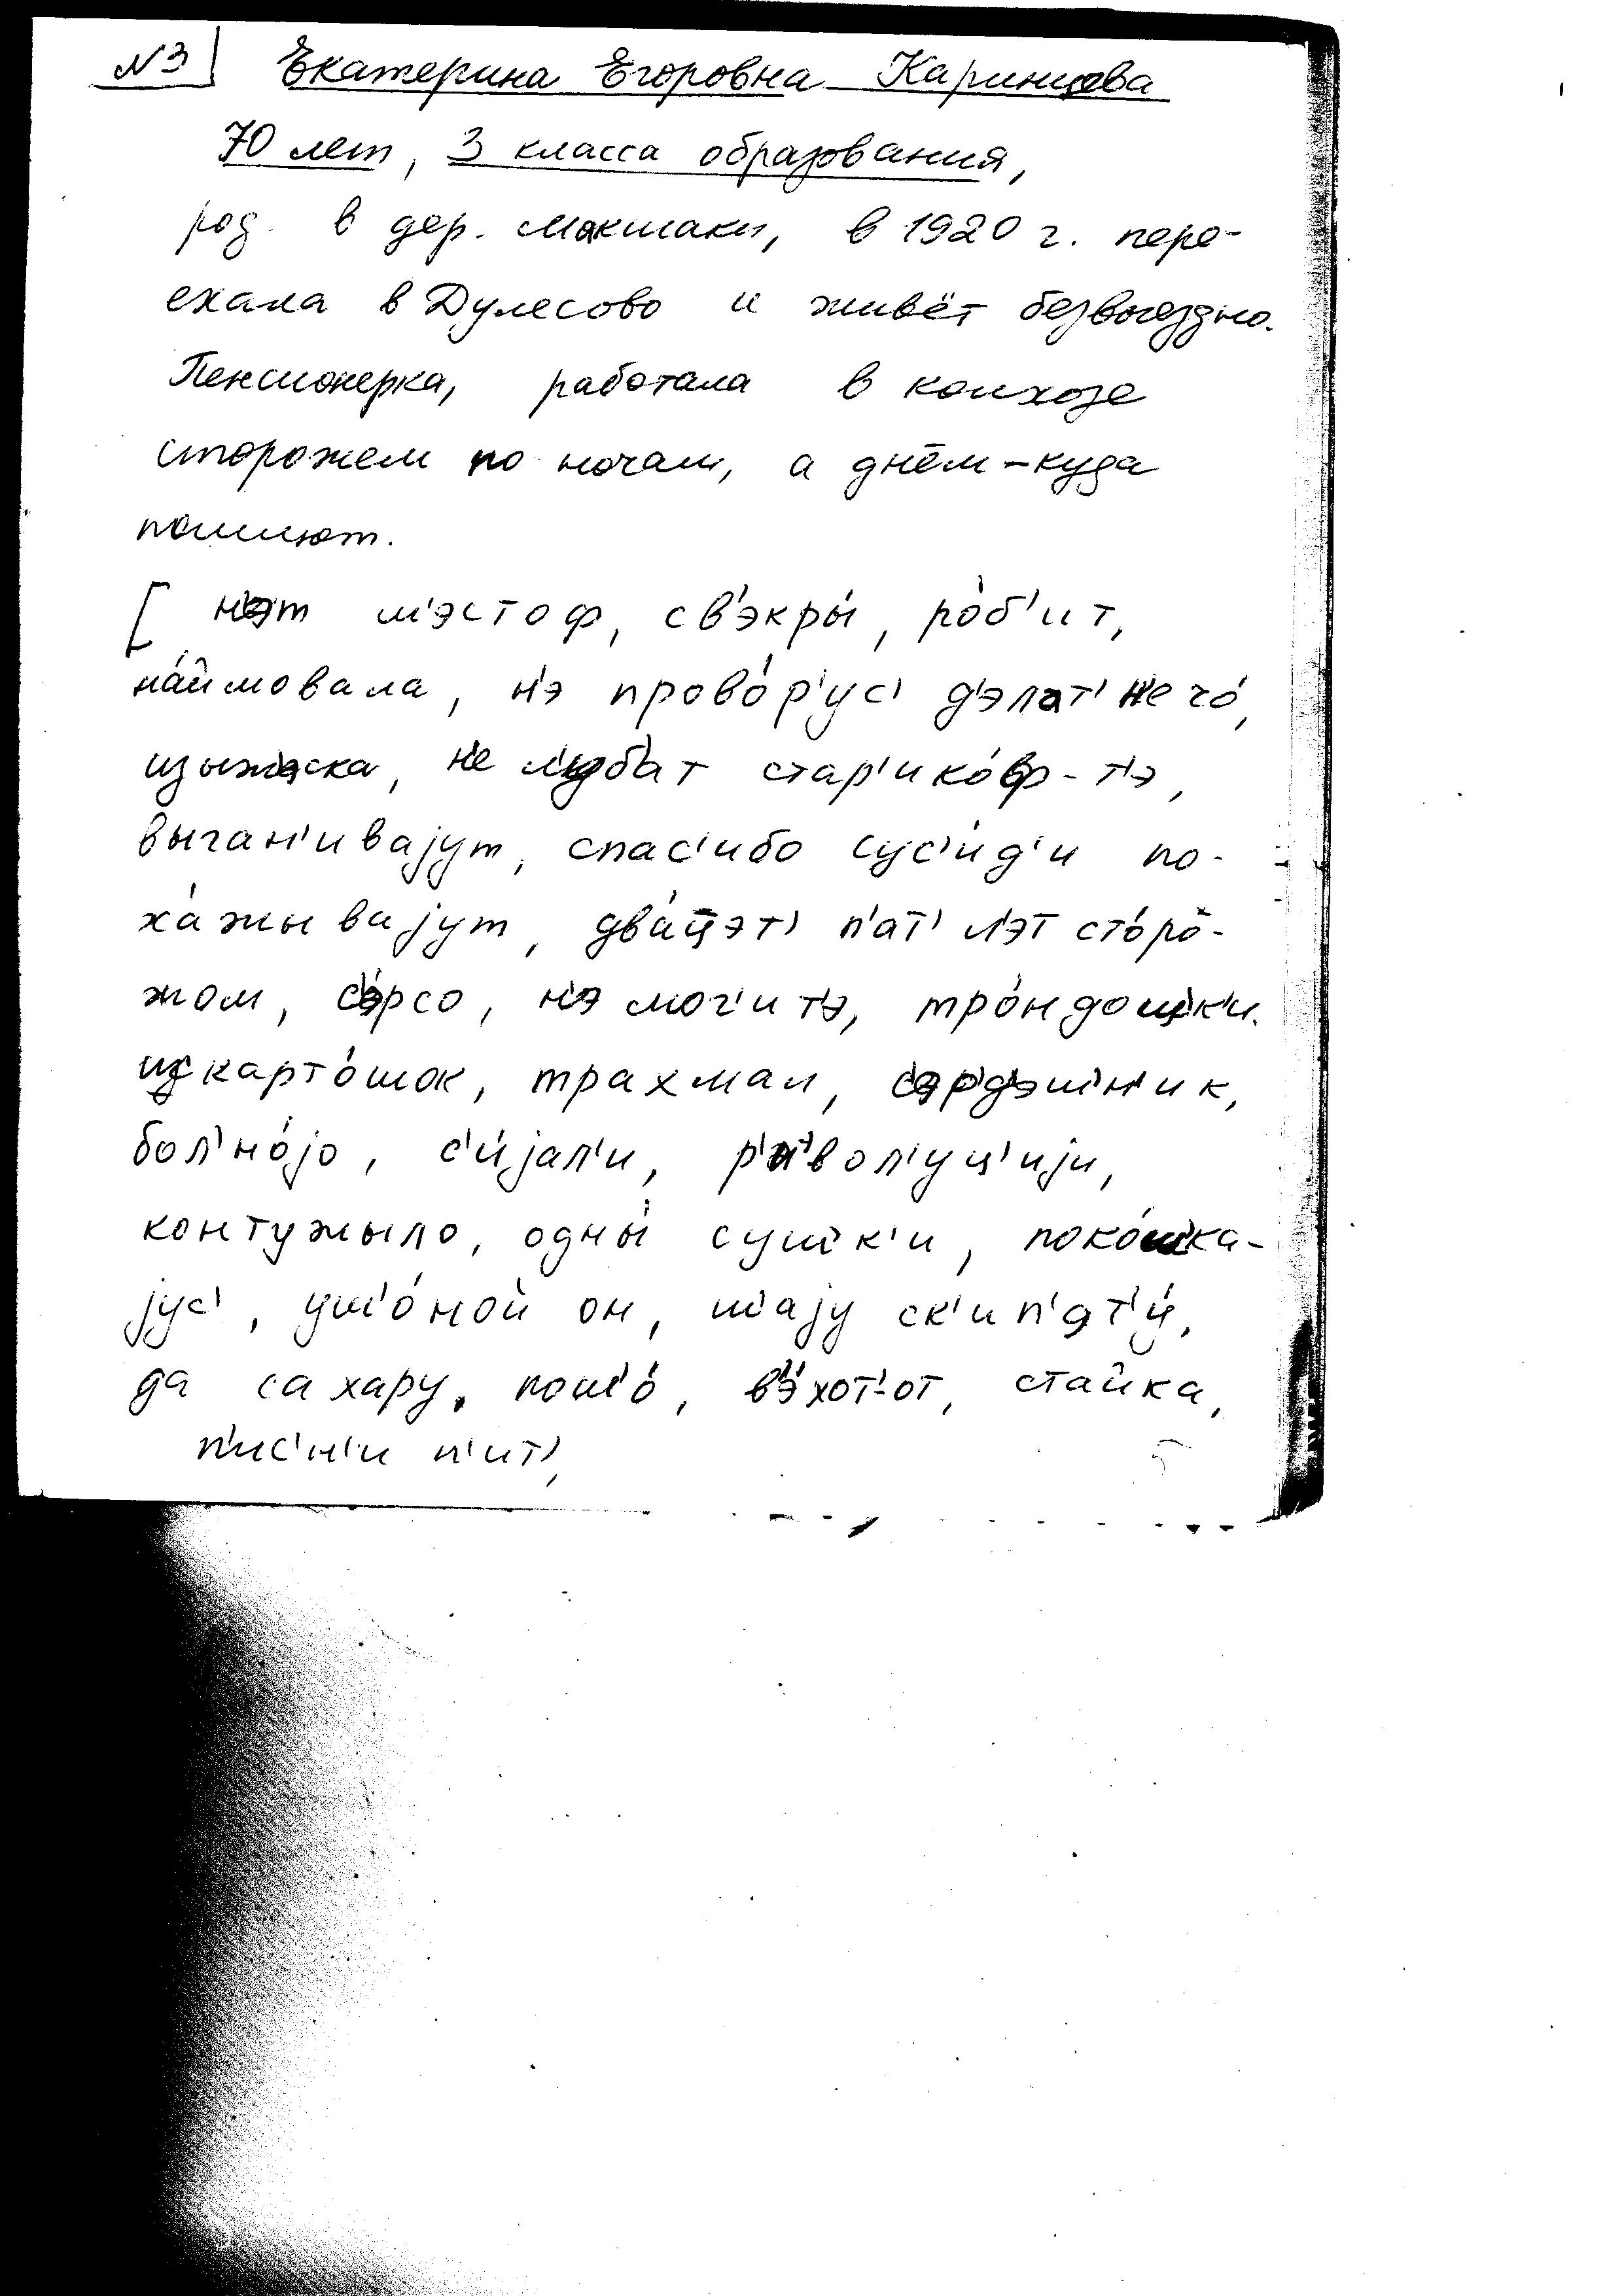 №3 Екатерина Егоровна Каринцева
70 лет, 3 класса образования,
род. в дер. Мокшаки, в 1920 г. пере-
ехала в Дулесово и живёт безвыездно.
Пенсионерка, работала в колхозе
сторожем по ночам, а днём – куда
пошлют.
[ н'эт м'эстоф, св'экры́, ро́б'ит,
на́ймовала, н'э прово́р'ус' д'элат' не чо́,
не л'уб'ат стар'ико́ф-т'э,
выган'ивајут, спас'ибо сус'и́д'и по-
ха́жывајут, два́ц̄эт' п'ат' л'эт сто́ро-
жом, с'э́рсо, н'э мог'ит'э,
ис карто́шок, трахмал,
бол'но́јо, с'и́јал'и, р'и́вол'уц'ији,
контужыло, одны́ суш'к'и, поко́шка-
јус', уш'о́ной он, ш'ају ск'ип'ат'и́,
да сахару, пош'о́, в'э́хот'-от, стайка,
п'ис'н'и п'ит',